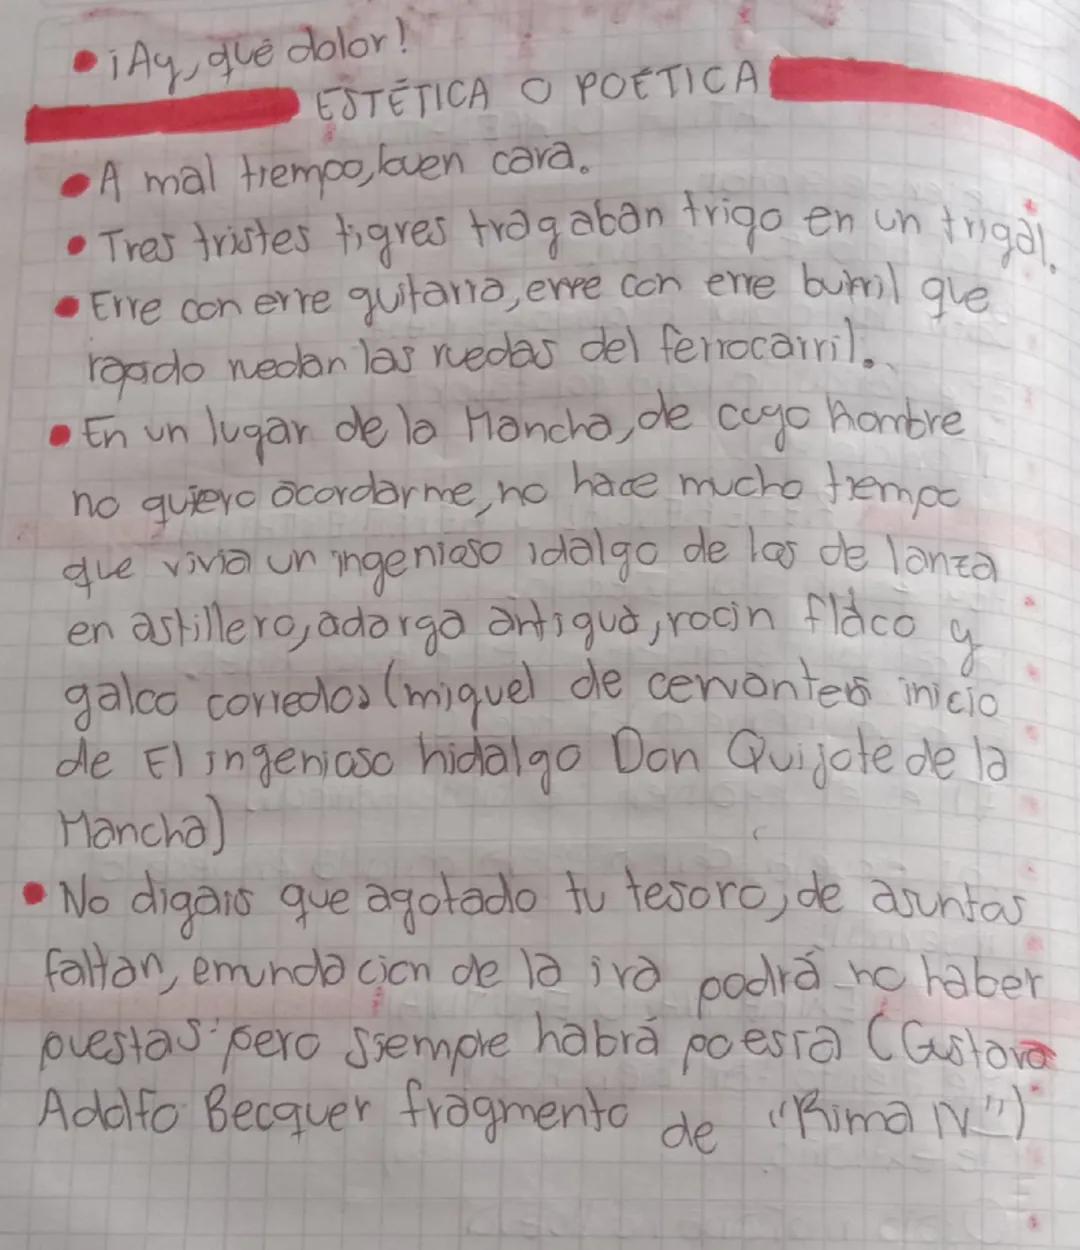 • ¡Ay, qué dolor!
ESTÉTICA O POÉTICA
• A mal tiempo, buen cara.
• Tres tristes tigres tragaban trigo en un trigal.
• Erre con erre guitarra, erre con erre burril que
ruedan las ruedas del ferrocarril.
• En un lugar de la Mancha, de cuyo nombre
no quiero acordarme, no hace mucho tiempo
que vivia un ingenioso idalgo de los de lanza
en astillero, adarga antigua, rocin flaco y
galco corredos (miguel de cervantes inicio
de El ingenioso hidalgo Don Quijote de la
Mancha)
• No digais que agotado tu tesoro, de asuntas
faltan, emundacion de la ira podrá no haber
puestas. pero siempre habrá poesia (Gustavo
Adolfo Becquer fragmento de "Rima IV")